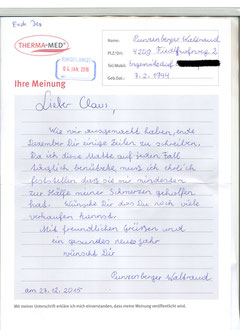 Ende Dez
THERMA-MED®
Name: Punzenberger Waltraud
PLZ/Ort: 4209 Friedhofweg 2
Tel/Mobil: Engerwitzdorf
Geb.Dat.: 7.2.1944
04. JAN. 2016
Ihre Meinung
Lieber Claus,
Wie wir ausgemacht haben, ende
Dezember Dir einige Zeilen zu schreiben.
Da ich diese Matte auf jeden Fall
täglich benütze muss ich ehrlich
feststellen dass sie mir mindestens
zur Hälfte meiner Schmerzen geholfen
hat. Wünsche Dir dass Du noch viele
verkaufen kannst.
Mit freundlichen Grüßen und
ein gesundes neues Jahr
wünscht Dir
Punzenberger Waltraud
am 27.12.2015
Mit meiner Unterschrift erkläre ich mich einverstanden, dass meine Meinung veröffentlicht wird.